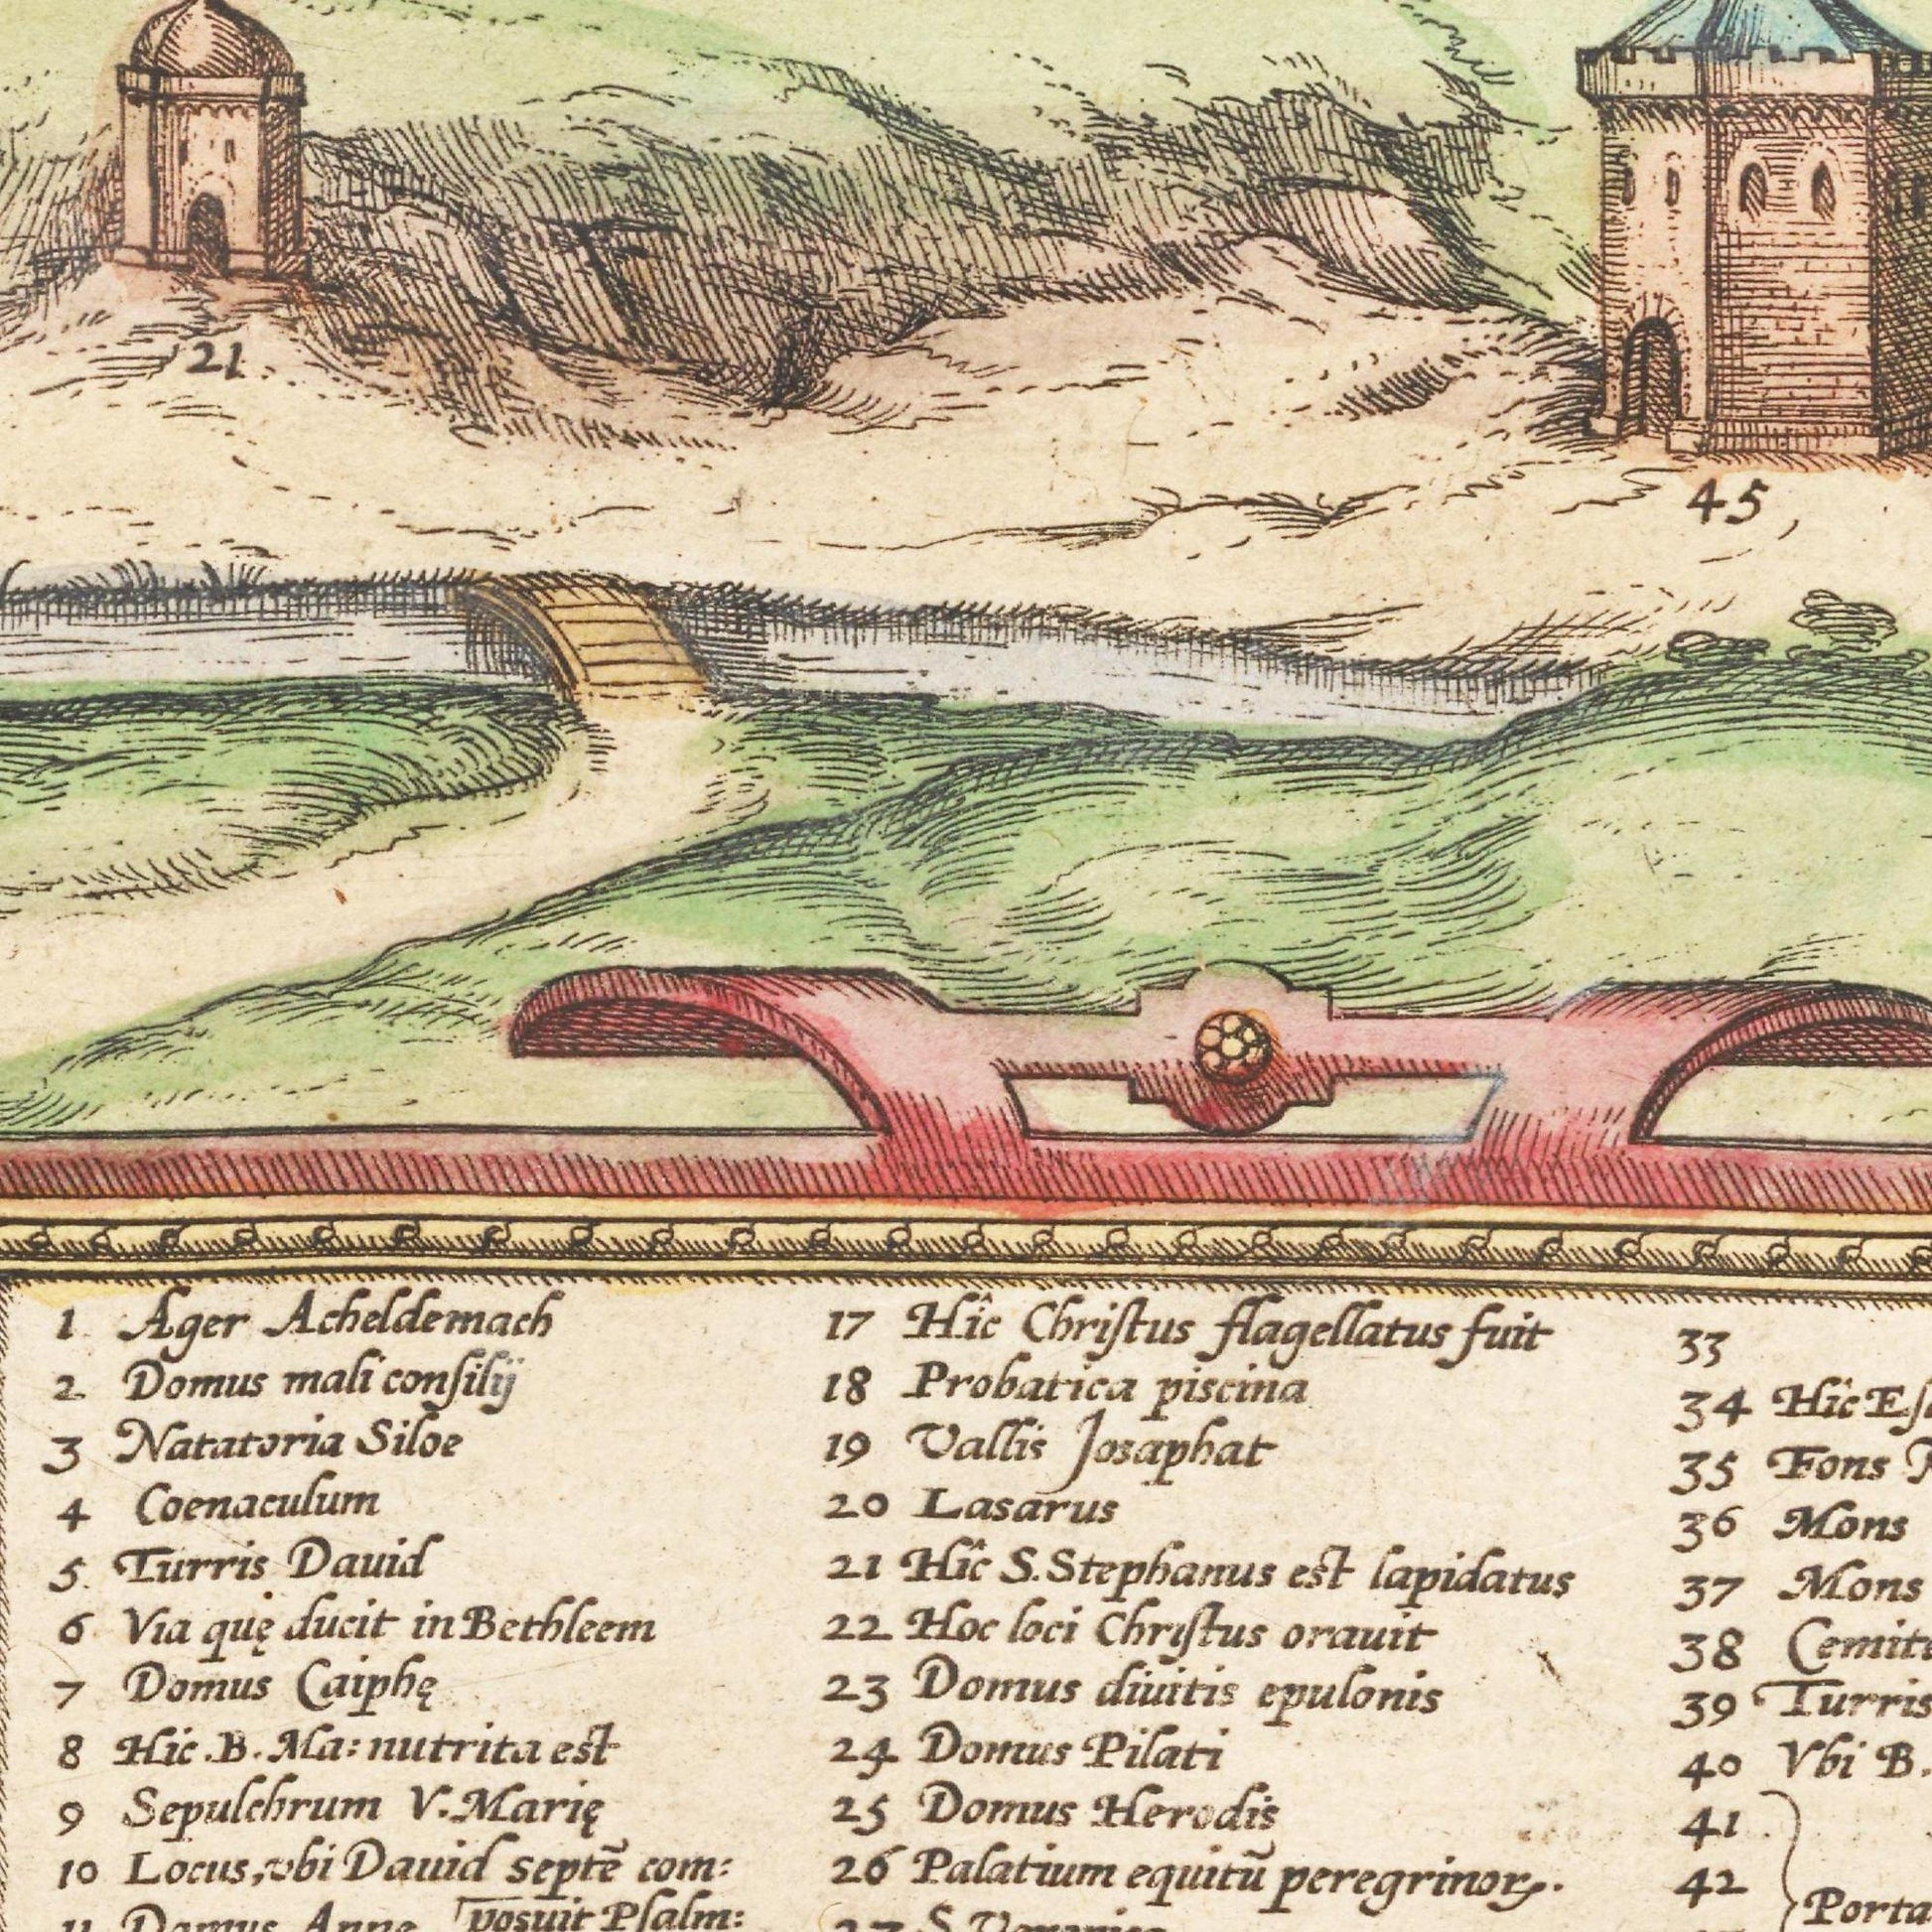 21.
45,
1 Ager Acheldemach
2 Domus mali conſilij
3 Natatoria Siloe
4 Coenaculum
5. Turris Dauid
6 Via quę ducit in Bethleem
7 Domus Caiphę
8 Hic .B. Ma: nutrita est
9 Sepulchrum V. Marię
10 Locus, vbi Dauid septē com:
11 Domus Anne posuit Pſalm:
17 Hîc Chriſtus flagellatus fuit
18 Probatica piscina
19 Vallis Josaphat
20 Lasarus
21 Hîc S. Stephanus est lapidatus
22 Hoc loci Chriſtus orauit
23 Domus diuitis epulonis
24 Domus Pilati
25 Domus Herodis
26 Palatium equitū peregrinorꝝ.
27 S. Veronica
33
34 Hîc
35 Fons
36 Mons
37 Mons
38
39 Turris
40 Vbi B.
41
42
Porta